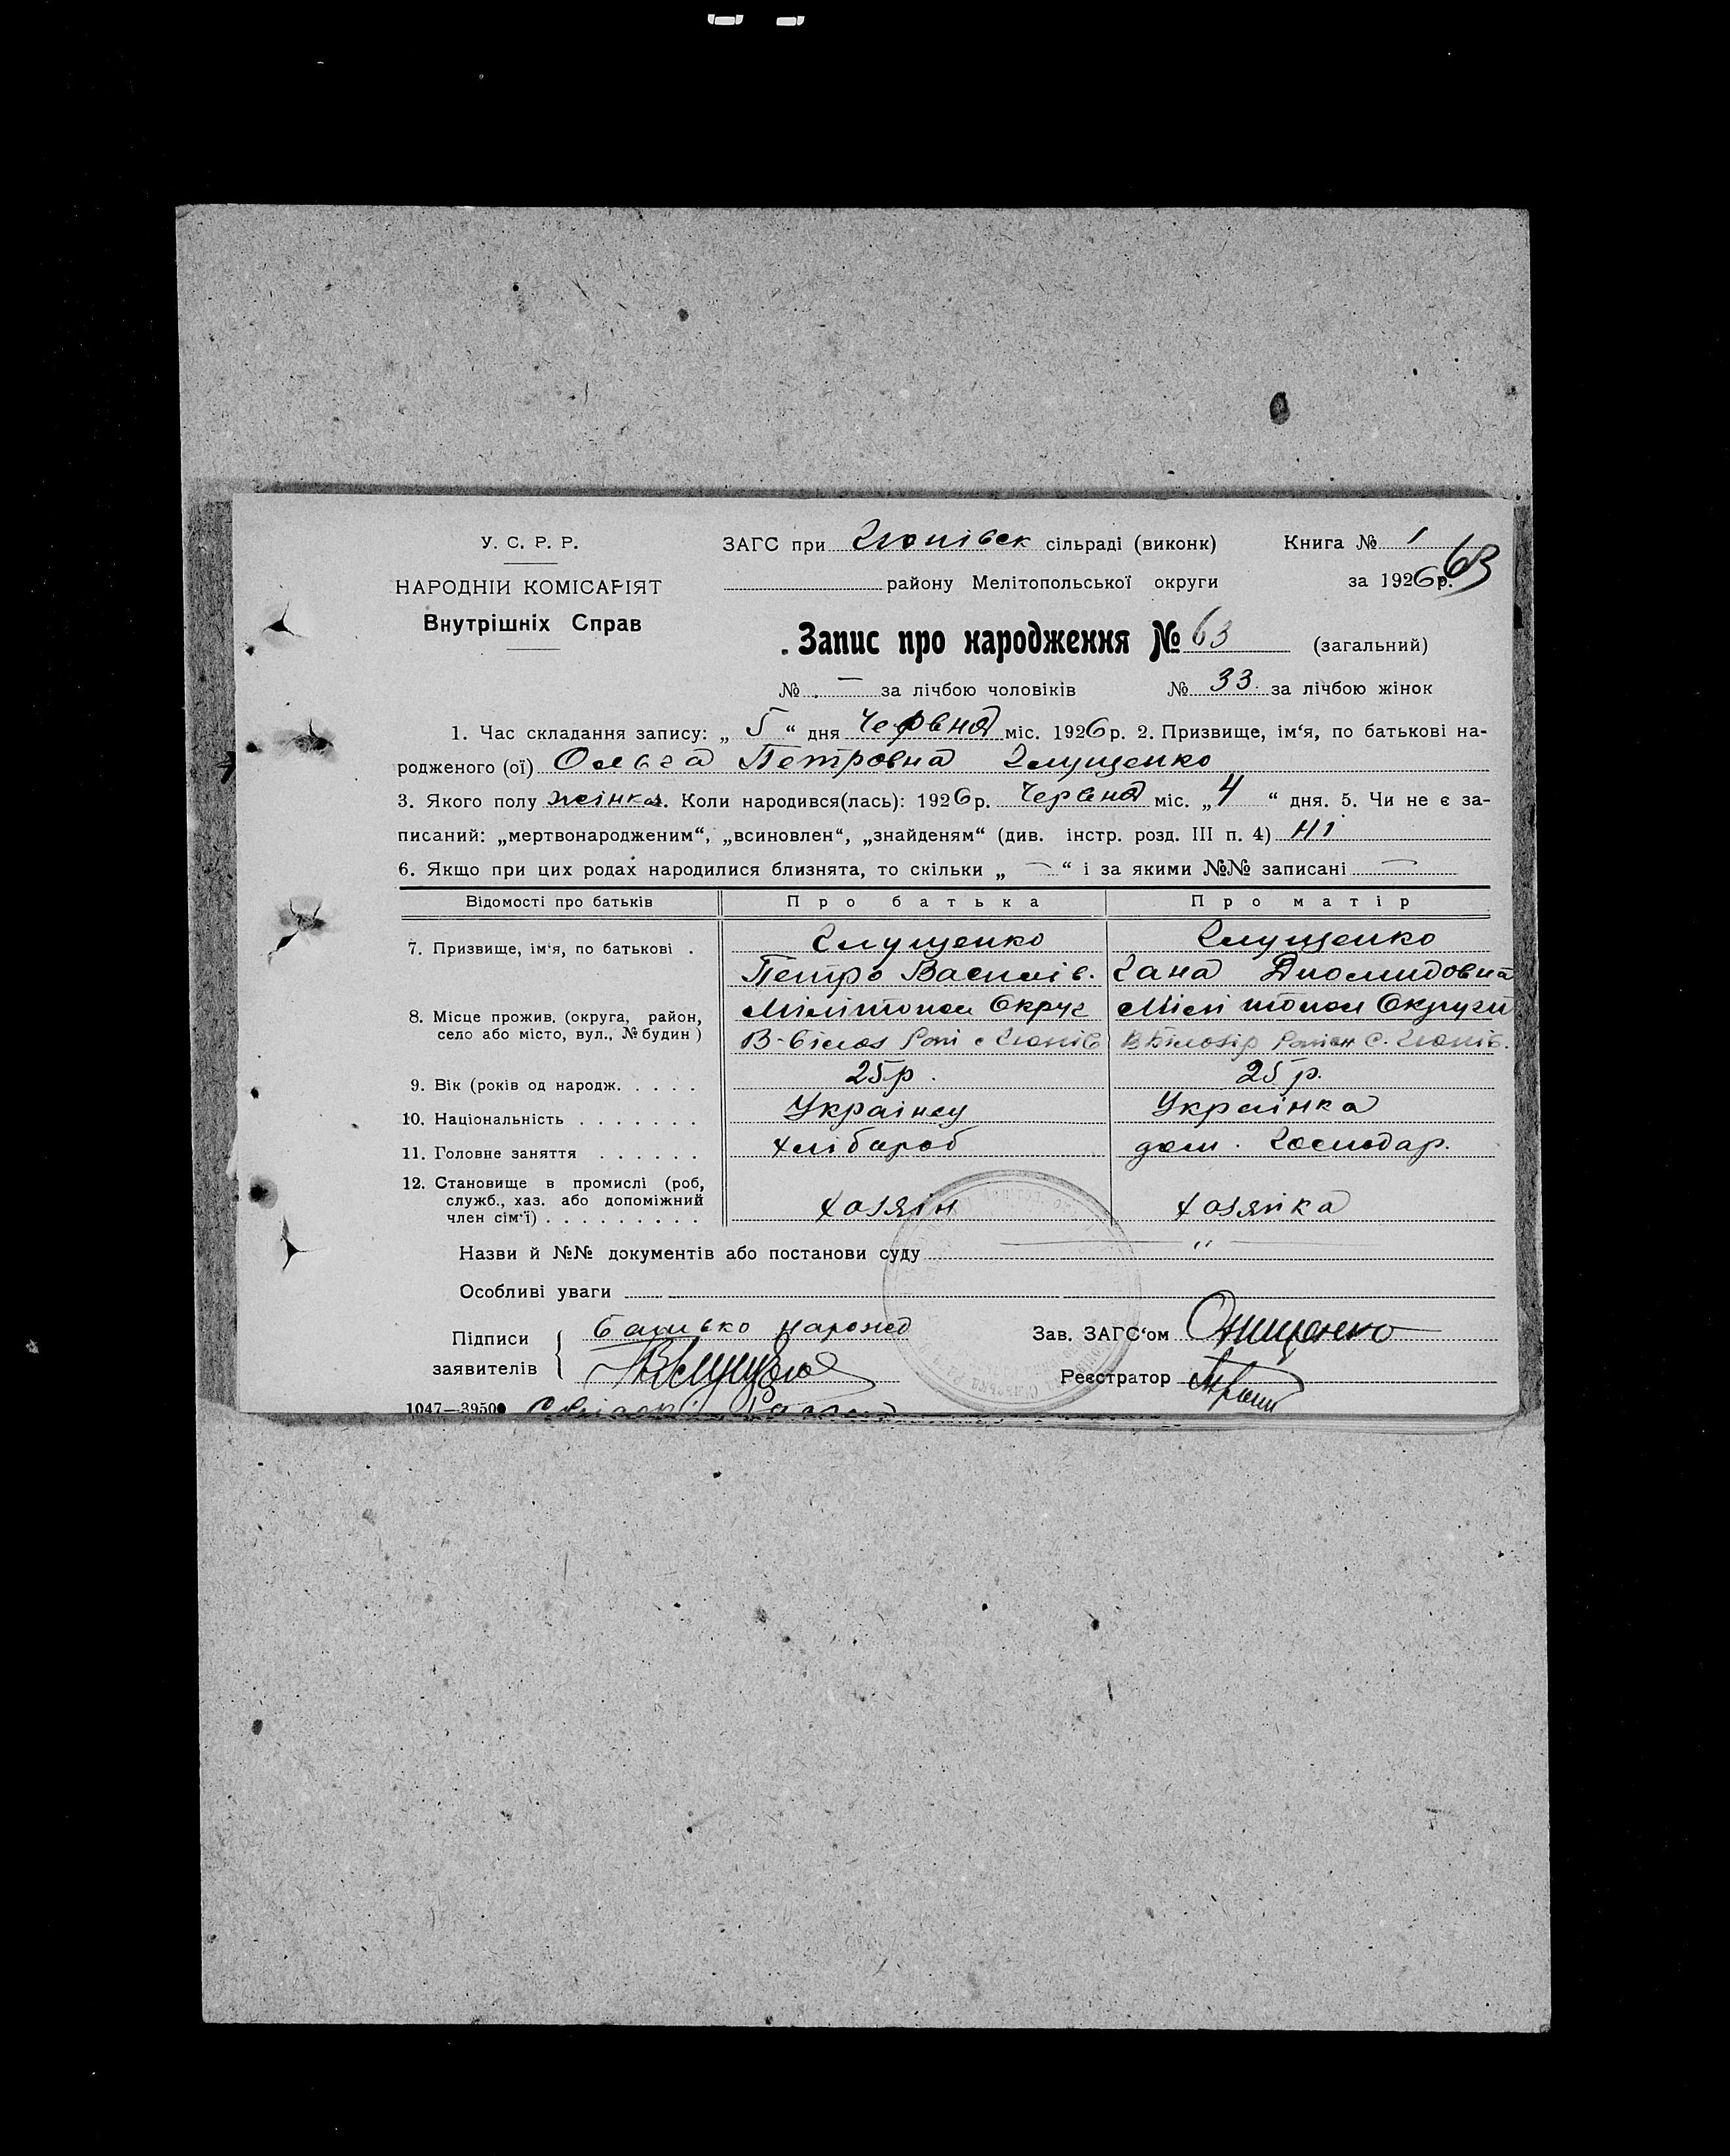 У. С. Р. Р.
НАРОДНІЙ КОМІСАРІЯТ
Внутрішніх Справ
ЗАГС при Гюнівск сільраді (виконк) Книга № 1
району Мелітопольської округи за 1926 р. 63
Запис про народження № 63 (загальний)
№ — за лічбою чоловіків № 33 за лічбою жінок
1. Час складання запису: „ 5 “ дня Червня міс. 1926 р. 2. Призвище, ім‘я, по батькові на-
родженого (ої) Ольга Петровна Глущенко
3. Якого полу жінка. Коли народився(лась): 1926 р. Червня міс. „ 4 “ дня. 5. Чи не є за-
писаний: „мертвонародженим“, „всиновлен“, „знайденям“ (див. інстр. розд. III п. 4) Ні
6. Якщо при цих родах народилися близнята, то скільки „ — “ і за якими №№ записані —
Відомості про батьків Про батька Про матір
7. Призвище, ім‘я, по батькові . Глущенко Глущенко
Петро Василів. Гана Диомидовна
8. Місце прожив. (округа, район, Мілітопол Округ Мілітопол Округи
село або місто, вул., № будин) В-Білоз с Гюнів ВБілозір Район С. Гюнів.
9. Вік (років од народж. . . . . 25 р. 25 р.
10. Національність . . . . . . . Українец Українка
11. Головне заняття . . . . . . Хлібароб дом. Господар.
12. Становище в промислі (роб, служб., хаз. або допоміжний член сім‘ї) . . . . . . . . . Хозяїн Хозяйка
Назви й №№ документів або постанови суду — „ —
Особливі уваги
Підписи Батько нарожд Зав. ЗАГС‘ом Онищенко
заявителів
Реєстратор
1047—39500